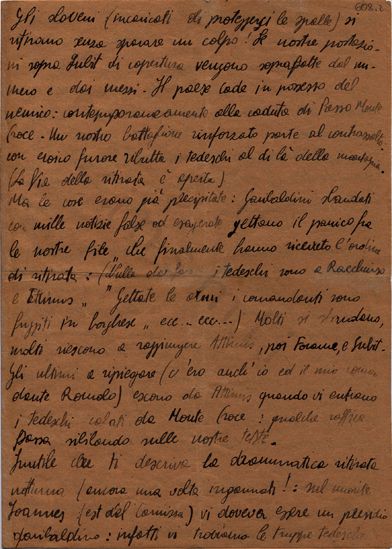 602.2
Gli sloveni (incaricati di proteggerci le spalle) si
ritirano senza sparare un colpo! Le nostre postazio-
ni sopra Subit di copertura vengono sopraffatte dal nu-
mero e dai mezzi. Il paese cade in possesso del
nemico: contemporaneamente alla caduta di Passo Monte
Croce. Un nostro battaglione rinforzato parte al contrassalto
con eroico furore ributta i tedeschi al di là della montagna.
(la via della ritirata è aperta)
Ma le cose erano già precipitate: Garibaldini sbandati
con mille notizie false ed esagerate gettano il panico fra
le nostre file, che finalmente hanno ricevuto l'ordine
di ritirata: ( i tedeschi sono a Racchiuso
e Attimis" "Gettate le armi i comandanti sono
fuggiti in borghese" ecc... ecc....) Molti si sbandano,
molti riescono a raggiungere Attimis, poi Forame, e Subit.
Gli ultimi a ripiegare (c'ero anch'io ed il mio coman
dante Romolo) escono da Attimis quando vi entrano
i tedeschi calati da Monte Croce: qualche raffica
passa sibilando sulle nostre teste.
Inutile che ti descriva la drammatica ritirata
notturna (ancora una volta ingannati!: sul
Joannes (est del Cornizza) vi doveva essere un presidio
garibaldino: infatti vi troviamo le truppe tedesche